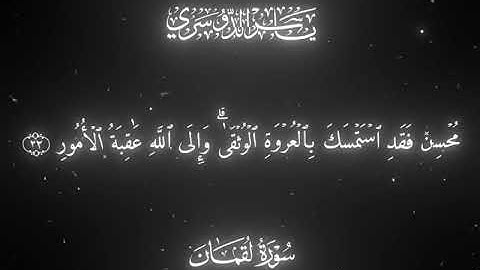 ياسر الدوسري
مُحۡسِنٞ فَقَدِ ٱسۡتَمۡسَكَ بِٱلۡعُرۡوَةِ ٱلۡوُثۡقَىٰۗ وَإِلَى ٱللَّهِ عَٰقِبَةُ ٱلۡأُمُورِ ٢٢
سُورَةُ لُقْمَان